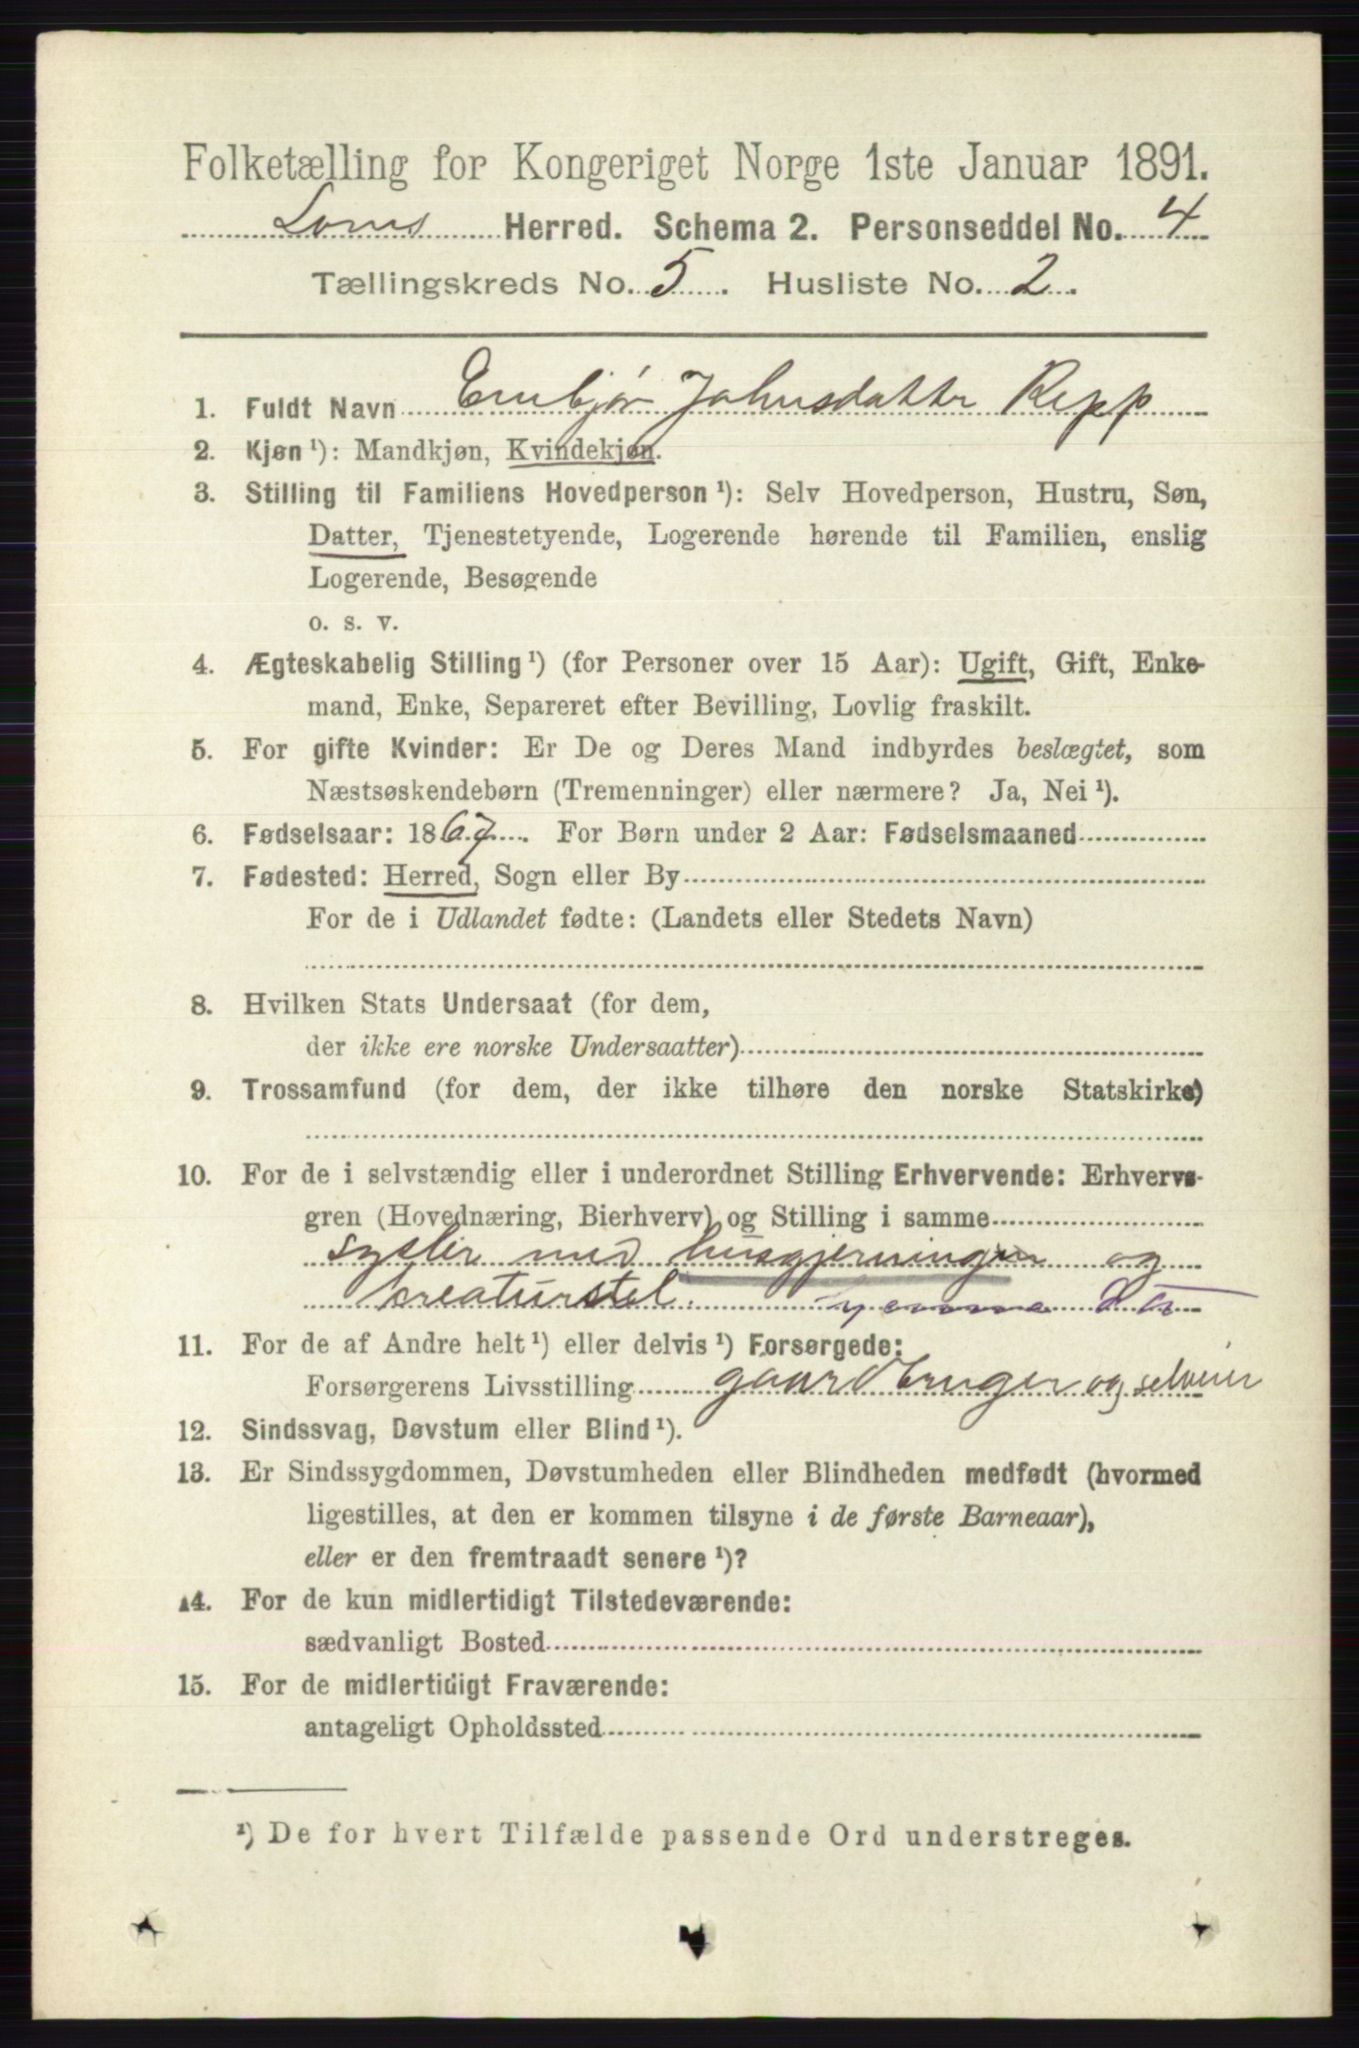 Folketælling for Kongeriget Norge 1ste Januar 1891.
Loms Herred. Schema 2. Personseddel No. 4
Tællingskreds No. 5. Husliste No. 2.
1. Fuldt Navn Embjør Johnsdatter Repp
2. Kjøn ¹): Mandkjøn, Kvindekjøn.
3. Stilling til Familiens Hovedperson ¹): Selv Hovedperson, Hustru, Søn,
Datter, Tjenestetyende, Logerende hørende til Familien, enslig
Logerende, Besøgende
o. s. v.
4. Ægteskabelig Stilling ¹) (for Personer over 15 Aar): Ugift, Gift, Enke-
mand, Enke, Separeret efter Bevilling, Lovlig fraskilt.
5. For gifte Kvinder: Er De og Deres Mand indbyrdes beslægtet, som
Næstsøskendebørn (Tremenninger) eller nærmere? Ja, Nei ¹).
6. Fødselsaar: 1867. For Børn under 2 Aar: Fødselsmaaned
7. Fødested: Herred, Sogn eller By
For de i Udlandet fødte: (Landets eller Stedets Navn)
8. Hvilken Stats Undersaat (for dem,
der ikke ere norske Undersaatter)
9. Trossamfund (for dem, der ikke tilhøre den norske Statskirke)
10. For de i selvstændig eller i underordnet Stilling Erhvervende: Erhvervs-
gren (Hovednæring, Bierhverv) og Stilling i samme
sysler med husgjerningen og
kreaturstel. hjemme dtr
11. For de af Andre helt ¹) eller delvis ¹) Forsørgede:
Forsørgerens Livsstilling gaardbruger og selveier
12. Sindssvag, Døvstum eller Blind ¹).
13. Er Sindssygdommen, Døvstumheden eller Blindheden medfødt (hvormed
ligestilles, at den er kommen tilsyne i de første Barneaar),
eller er den fremtraadt senere ¹)?
14. For de kun midlertidigt Tilstedeværende:
sædvanligt Bosted
15. For de midlertidigt Fraværende:
antageligt Opholdssted
¹) De for hvert Tilfælde passende Ord understreges.